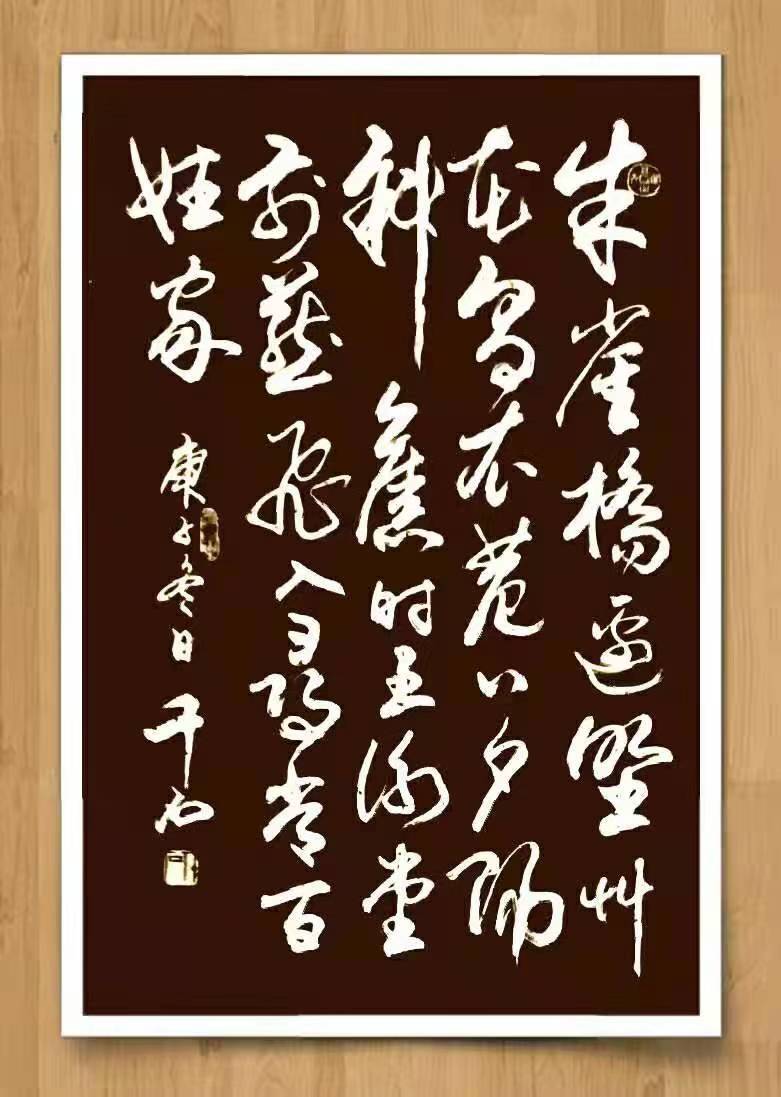 朱雀橋邊野艸
花烏衣巷口夕陽
斜舊时王謝堂
前燕飛入尋常百
姓家
庚子冬日千石